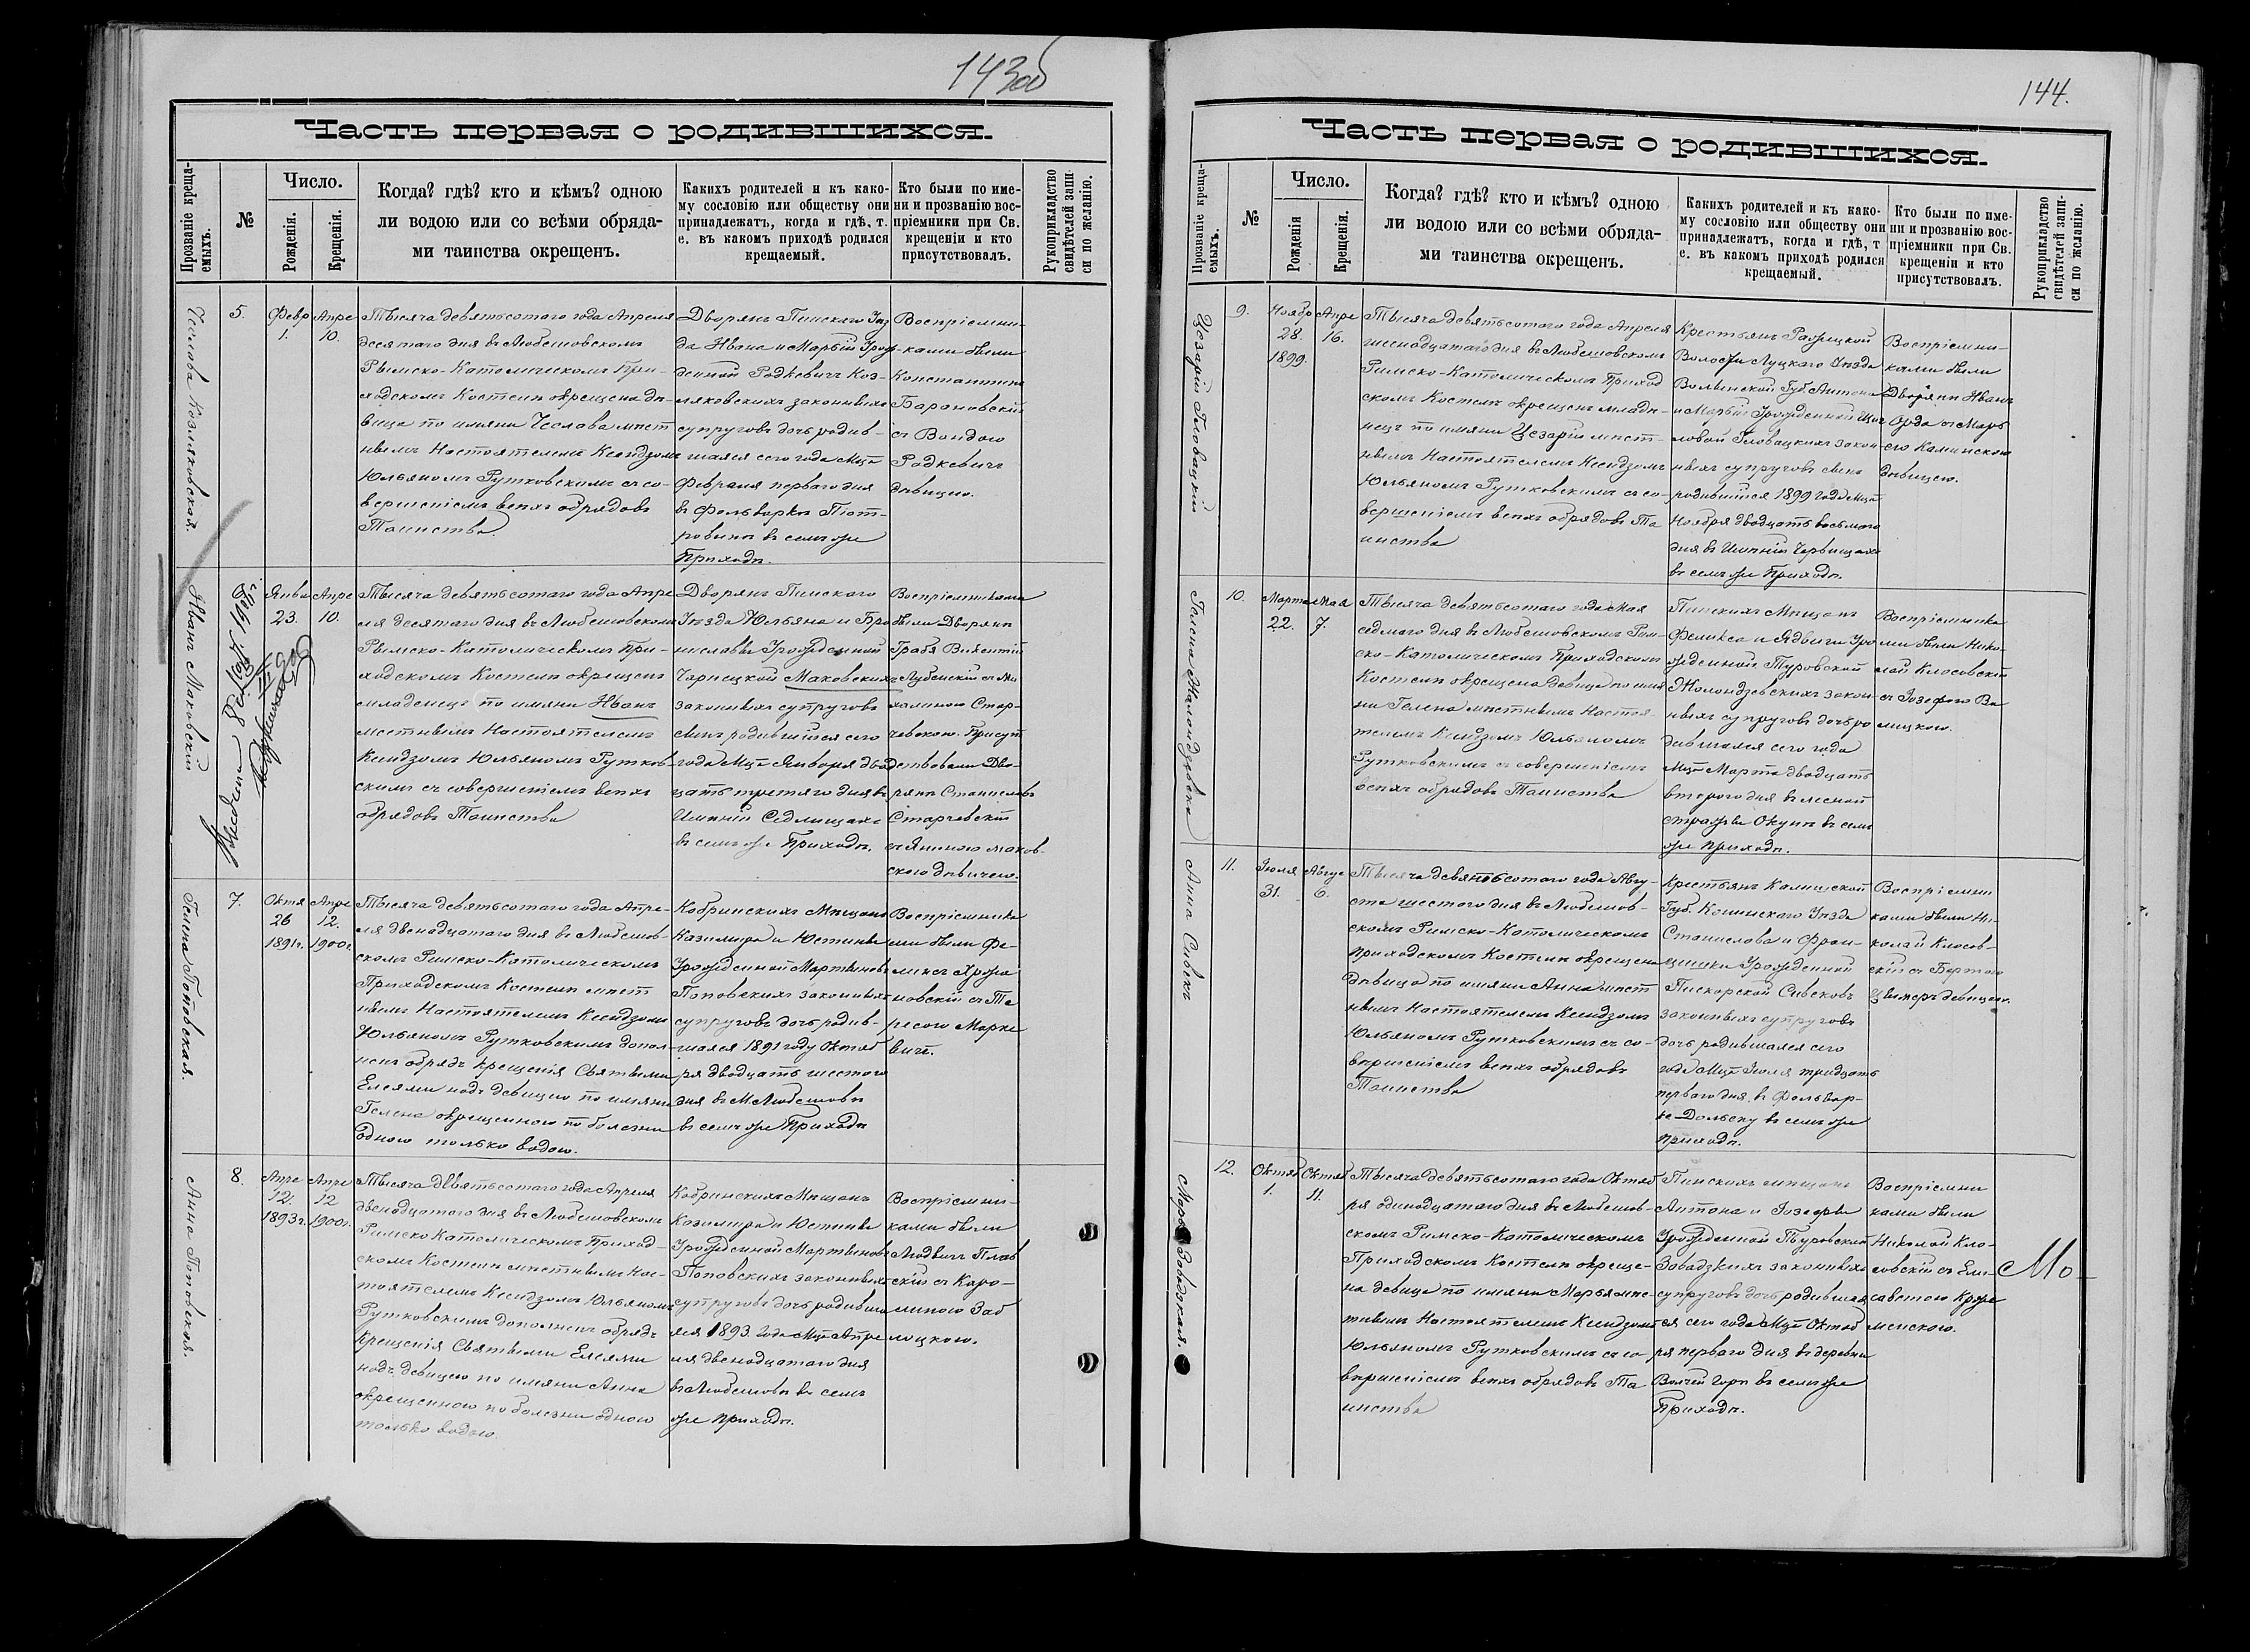 143об
Часть первая о родившихся.
Прозваніе креща-
емыхъ.
№
Число.
Рожденія.
Крещенія.
Когда? гдѣ? кто и кѣмъ? одною
ли водою или со всѣми обряда-
ми таинства окрещенъ.
Какихъ родителей и къ како-
му сословію или обществу они
принадлежатъ, когда и гдѣ, т.
е. въ какомъ приходѣ родился
крещаемый.
Кто были по име-
ни и прозванію вос-
пріемники при Св.
крещеніи и кто
присутствовалъ.
Рукоприкладство
свидѣтелей запи-
си по желанію.
Чеслава Козляковская.
5.
Февр
1.
Апре
10.
Тысяча девятьсотаго года Апреля
десятаго дня въ Любешовскомъ
Римско-Католическомъ При-
ходскомъ Костелѣ окрещена дѣ-
вица по имяни Чеслава мѣст
нымъ Настоятелемъ Ксендзомъ
Юльяномъ Рутковскимъ съ со-
вершеніемъ всѣхъ обрядовъ
Таинства.
Дворянъ Пинскаго Уѣз
да Ивана и Маріи Урож-
денной Радкевичъ Коз-
ляковскихъ законныхъ
супруговъ дочь родив-
шаяся сего года Мца
Февраля перваго дня
въ Фольваркѣ
въ семъ же
Приходѣ.
Воспріемни-
ками были
Константинъ
Барановскій
съ Вандою
Радкевичъ
дѣвицею.
Иванъ Маковскій
Янва
23.
Апре
10.
Тысяча девятьсотаго года Апре
ля десятаго дня въ Любешовскомъ
Римско-Католическомъ При-
ходскомъ Костелѣ окрещенъ
младенецъ по имяни Иванъ
мѣстнымъ Настоятелемъ
Ксендзомъ Юльяномъ Рутков-
скимъ съ совершеніемъ всѣхъ
обрядовъ Таинства
Дворянъ Пинскаго
Уѣзда Юльяна и Бро
ниславы Урожденной
Чарнецкой Маковскихъ
законныхъ супруговъ
сынъ родившійся сего
года Мца Января двад
цать третяго дня въ
Имѣніи Седлищахъ
въ семъ же Приходѣ.
Воспріемниками
были Дворяне
Викентій
съ
Стар-
чевскою. Присут
ствовали Дво-
ряне Станиславъ
Старчевскій
съ Яниною Маков-
скою дѣвицею.
Гелена Поповская.
7.
Октя
26
1891г.
Апре
12.
1900г.
Тысяча девятьсотаго года Апре-
ля двенадцатаго дня въ Любешов-
скомъ Римско-Католическомъ
Приходскомъ Костелѣ мѣст
нымъ Настоятелемъ Ксендзомъ
Юльяномъ Рутковскимъ допол-
ненъ обрядъ крещенія Святыми
Елеями надъ девицею по имяни
Гелена окрещенною по болезни
одною только водою.
Кобринскихъ Мѣщанъ
Казимира и Юстины
Урожденной Мартыновъ
Поповскихъ законныхъ
супруговъ дочь родив-
шаяся 1891 году Октяб
ря двадцать шестого
дня въ М. Любешовѣ
въ семъ же Приходѣ
Воспріемника
ми были Фе-
ликсъ Хржа
новскій съ Те
ресою Марке
вичъ.
Анна Поповская.
8.
Апре
12.
1893г.
Апре
12
1900г.
Тысяча девятьсотаго года Апреля
двенадцатаго дня въ Любешовскомъ
Римско Католическомъ Приход-
скомъ Костелѣ мѣстнымъ Нас-
тоятелемъ Ксендзомъ Юльяномъ
Рутковскимъ дополненъ обрядъ
Крещенія Святыми Елеями
надъ девицею по имяни Анна
окрещенною по болезни одною
только водою.
Кобринскихъ Мѣщанъ
Казимира и Юстины
Урожденной Мартыновъ
Поповскихъ законныхъ
супруговъ дочь родивша
яся 1893 года Мца Апре
ля двенадцатаго дня
въ Любешовѣ въ семъ
же приходѣ.
Воспріемни-
ками были
Людвигъ Плав
скій съ Каро-
линою Заб
лоцкою.
144.
Часть первая о родившихся.
Прозваніе креща-
емыхъ.
№
Число.
Рожденія
Крещенія.
Когда? гдѣ? кто и кѣмъ? одною
ли водою или со всѣми обряда-
ми таинства окрещенъ.
Какихъ родителей и къ како-
му сословію или обществу они
принадлежатъ, когда и гдѣ, т
е. въ какомъ приходѣ родился
крещаемый.
Кто были по име-
ни и прозванію вос-
пріемники при Св.
крещеніи и кто
присутствовалъ.
Рукоприкладство
свидѣтелей запи-
си по желанію.
Цезарій Гловацкій
9.
Ноябр
28.
1899.
Апре
16.
Тысяча девятьсотаго года Апреля
шеснадцатаго дня въ Любешовскомъ
Римско-Католическомъ Приход
скомъ Костелѣ окрещенъ младе-
нецъ по имяни Цезарій мѣст-
нымъ Настоятелемъ Ксендзомъ
Юльяномъ Рутковскимъ съ со-
вершеніемъ всѣхъ обрядовъ Та
инства
Крестьянъ
Волости Луцкаго Уѣзда
Волынской Губ. Антона
и Маріи Урожденной
Гловацкихъ закон-
ныхъ супруговъ сынъ
родившійся 1899 года Мца
Ноября двадцать восьмого
дня въ Имѣніи Червищахъ
въ семъ же Приходѣ.
Воспріемни-
ками были
Дворяне Иванъ
Орда съ Марь
ею Каминскою
дѣвицею.
10.
Марта
22.
Мая
7.
Тысяча девятьсотаго года Мая
седмаго дня въ Любешовскомъ Рим-
ско-Католическомъ Приходскомъ
Костелѣ окрещена девица по имя
ни Гелена мѣстнымъ Настоя-
телемъ Ксендзомъ Юльяномъ
Рутковскимъ съ совершеніемъ
всѣхъ обрядовъ Таинства
Пинскихъ Мѣщанъ
Феликса и Ядвиги Уро
жденной Туровской
закон-
ныхъ супруговъ дочь ро
дившаяся сего года
Мца Марта двадцать
второго дня въ лесной
стражѣ Окунѣ въ семъ
же приходѣ.
Воспріемника
ми были Нико-
лай Клосовскій
съ Іозефою Ва
лицкою.
Анна Сивекъ
11.
Іюля
31.
Авгус
6.
Тысяча девятьсотаго года Авгу-
ста шестого дня въ Любешов-
скомъ Римско-Католическомъ
приходскомъ Костелѣ окрещена
дѣвица по имяни Анна мѣст
нымъ Настоятелемъ Ксендзомъ
Юльяномъ Рутковскимъ съ со-
вершеніемъ всѣхъ обрядовъ
Таинства
Крестьянъ Калишской
Губ. Конинскаго Уѣзда
Станислава и Фран-
цишки Урожденной
Пискорской Сивековъ
законныхъ супруговъ
дочь родившаяся сего
года Мца Іюля тридцать
перваго дня, въ Фольвар-
ке Дольску въ семъ же
приходѣ.
Воспріемни
ками были Ни-
колай Клосов-
скій съ Бертою
дѣвицею.
12.
Октяб
1.
Октяб
11.
Тысяча девятьсотаго года Октяб
ря одинадцатаго дня въ Любешов-
скомъ Римско-Католическомъ
Приходскомъ Костелѣ окреще-
на девица по имяни Марья мѣс-
тнымъ Настоятелемъ Ксендзомъ
Юльяномъ Рутковскимъ съ со
вершеніемъ всѣхъ обрядовъ Та
инства
Пинскихъ мѣщанъ
Антона и Іозефы
Урожденной Туровской
Завадзкихъ законныхъ
супруговъ дочь родившая
ся сего года Мца Октяб
ря перваго дня въ деревни
Волчей Горѣ въ семъ же
Приходѣ.
Воспріемни
ками были
Николай Кло-
совскій съ Ели-
саветою Крже
менскою.